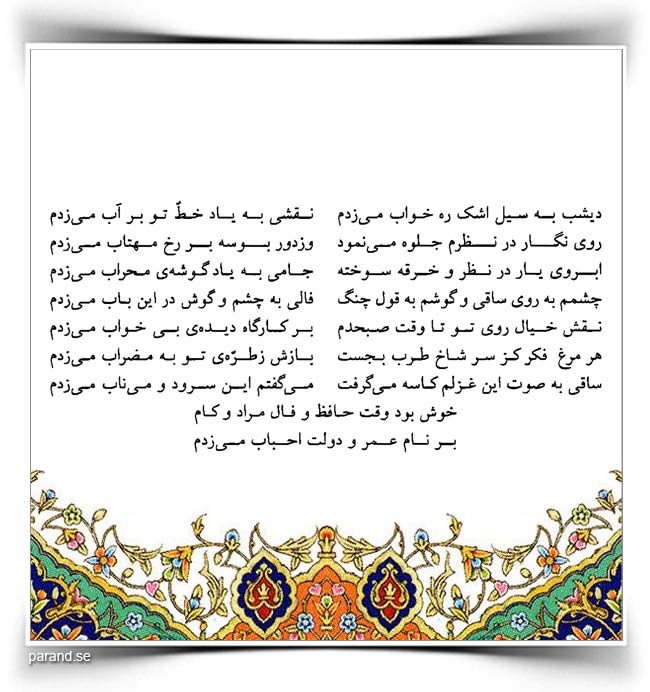 دیشب به سیل اشک ره خواب می‌زدم نقشی به یاد خطّ تو بر آب می‌زدم
روی نگار در نظرم جلوه می‌نمود وزدور بوسه بر رخ مهتاب می‌زدم
ابروی یار در نظر و خرقه سوخته جامی به یاد گوشه‌ی محراب می‌زدم
چشمم به روی ساقی و گوشم به قول چنگ فالی به چشم و گوش در این باب می‌زدم
نقش خیال روی تو تا وقت صبحدم بر کارگاه دیده‌ی بی خواب می‌زدم
هر مرغ فکر کز سر شاخ طرب بجست بازش زطرّه‌ی تو به مضراب می‌زدم
ساقی به صوت این غزلم کاسه می‌گرفت می‌گفتم این سرود و می‌ناب می‌زدم
خوش بود وقت حافظ و فال مراد و کام
بر نام عمر و دولت احباب می‌زدم
parand.se